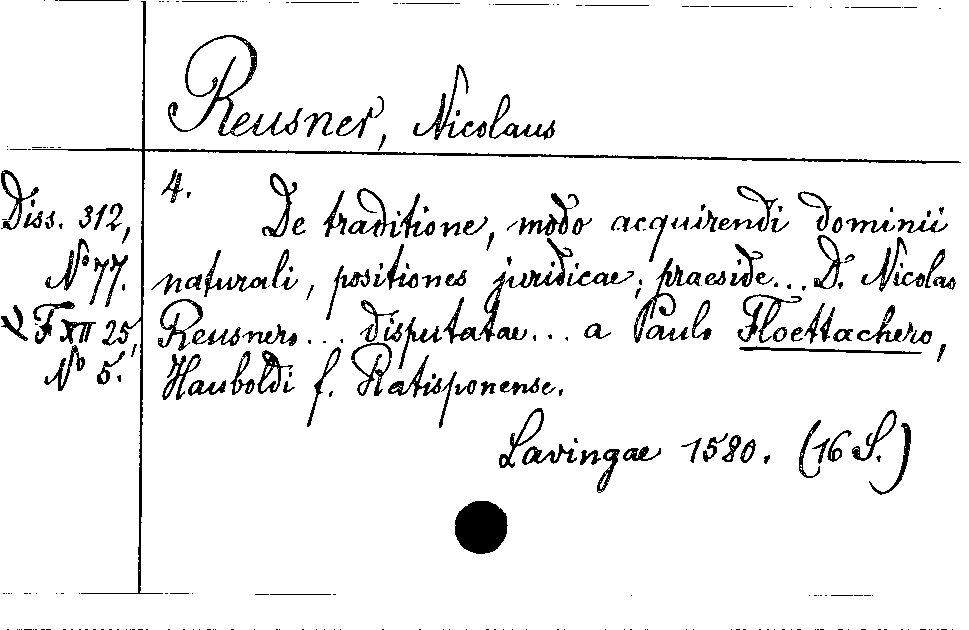 Reusner, Nicolaus
Diss. 312,
No 77.
& F XII 25,
No 5.
4.
De traditione, modo acquirendi dominii
naturali, positiones juridicae; praeside... D. Nicolao
Reusnero... disputatae... a Paulo Floettachero,
Hauboldi f. Ratisponense.
Lavingae 1580. (16 S.)